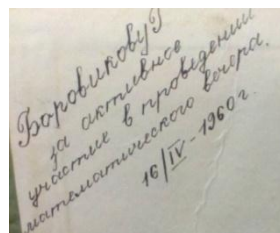 Боровикову Г
за активное
участие в проведении
математического вечера.
16/IV-1960 г.